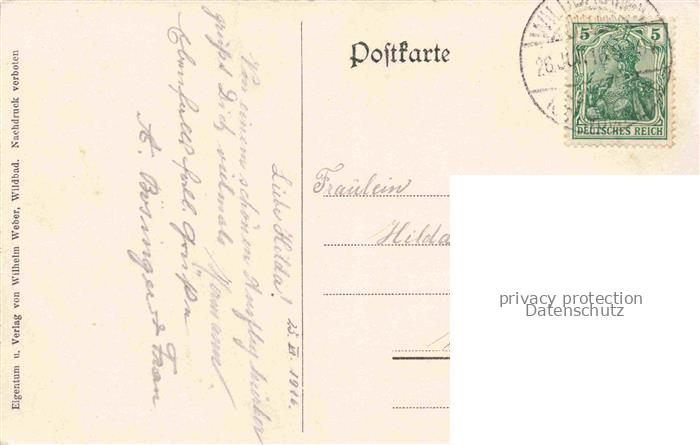 Eigentum u. Verlag von Wilhelm Weber, Wildbad. Nachdruck verboten
Postkarte
5 5
DEUTSCHES REICH
25. III. 1916.
Liebe Hilda!
Von einem schönen Ausflug hierher
grüßt Dich vielmals
Hermann.
Ebenfalls Grüße
A. Bösinger & Frau
Fräulein
Hilda
privacy protection
Datenschutz